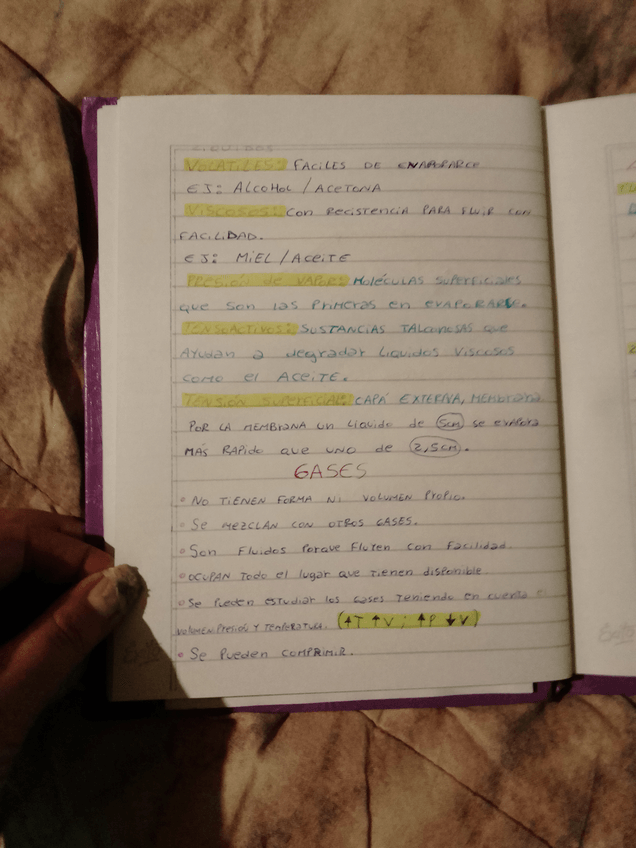 LIQUIDOS
VOLATILES: FACILES DE ENAPORARCE
EJ: ALCOHOL / ACETONA
VISCOSOS: CON RECISTENCIA PARA FLUIR CON
FACILIDAD.
EJ: MIEL / ACEITE
PRESIÓN de VAPOR: MOLÉCULAS SUPERFICIALES
que SON LAS PRIMERAS en EVAPORARSE.
TENSOACTIVOS: SUSTANCIAS que
AYUDAN a degradar LIQUIDOS VISCOSOS
como el ACEITE.
TENSIÓN SUPERFICIAL: CAPA EXTERNA, MEMBRANA
POR LA MEMBRANA UN LIQUIDO de 5cm se EVAPORA
MÁS RAPIDO que UNO de 2,5cm.
GASES
• NO TIENEN FORMA NI VOLUMEN PROPIO.
• SE MEZCLAN CON OTROS GASES.
• SON FLUIDOS PORQUE FLUYEN CON FACILIDAD.
• OCUPAN TODO el lugar que TIENEN DISPONIBLE.
• Se PUEDEN ESTUDIAR LOS GASES TENIENDO EN CUENTA el
VOLUMEN PRESIÓN Y TEMPERATURA. (↑T ↑V ; ↑P ↓V)
• Se PUEDEN COMPRIMIR.